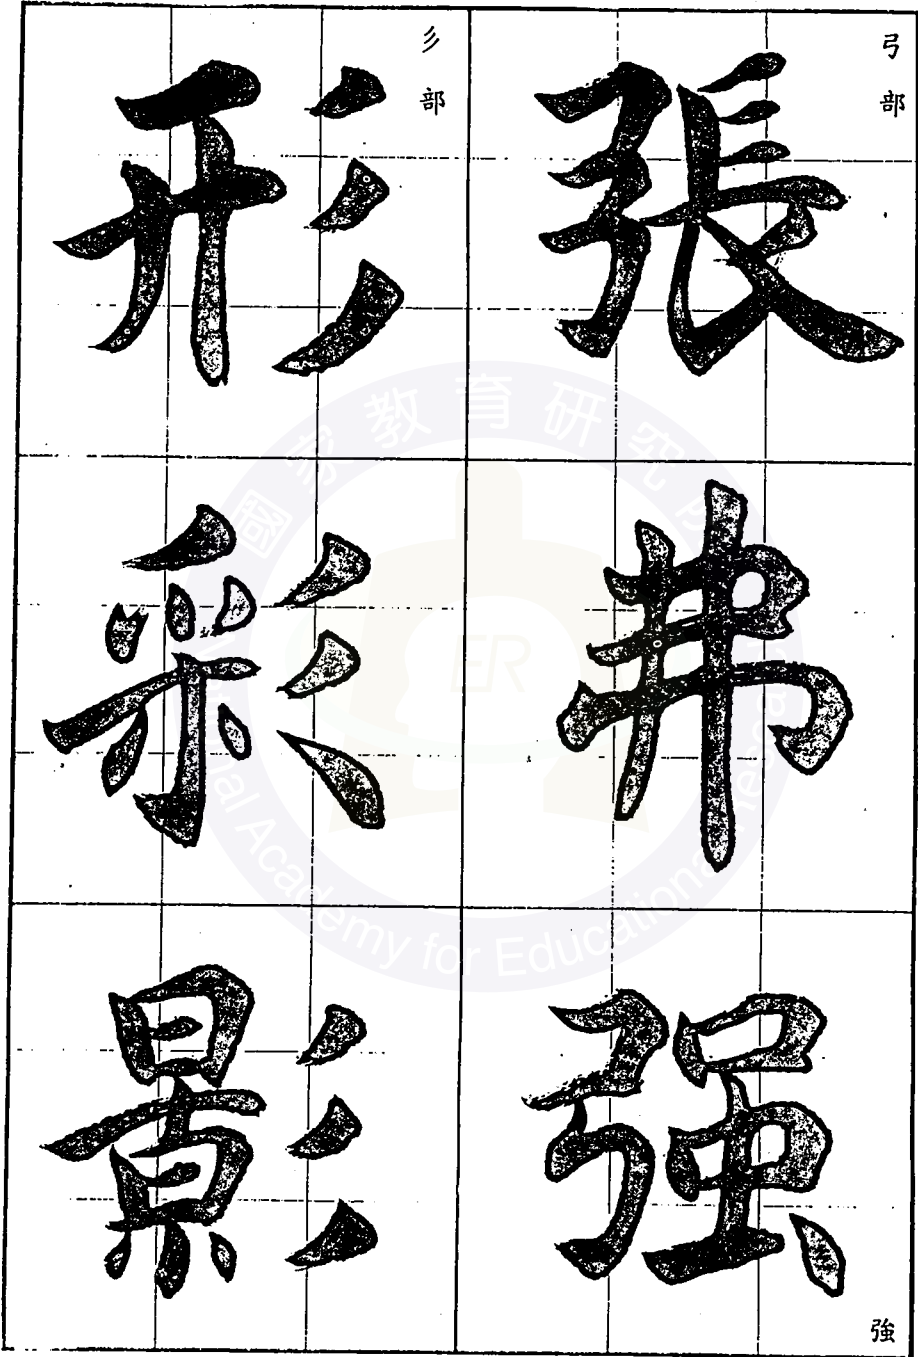 弓部
張
弗
强
強
彡部
形
彩
影
國家教育研究院
National Academy for Educational Research
ER